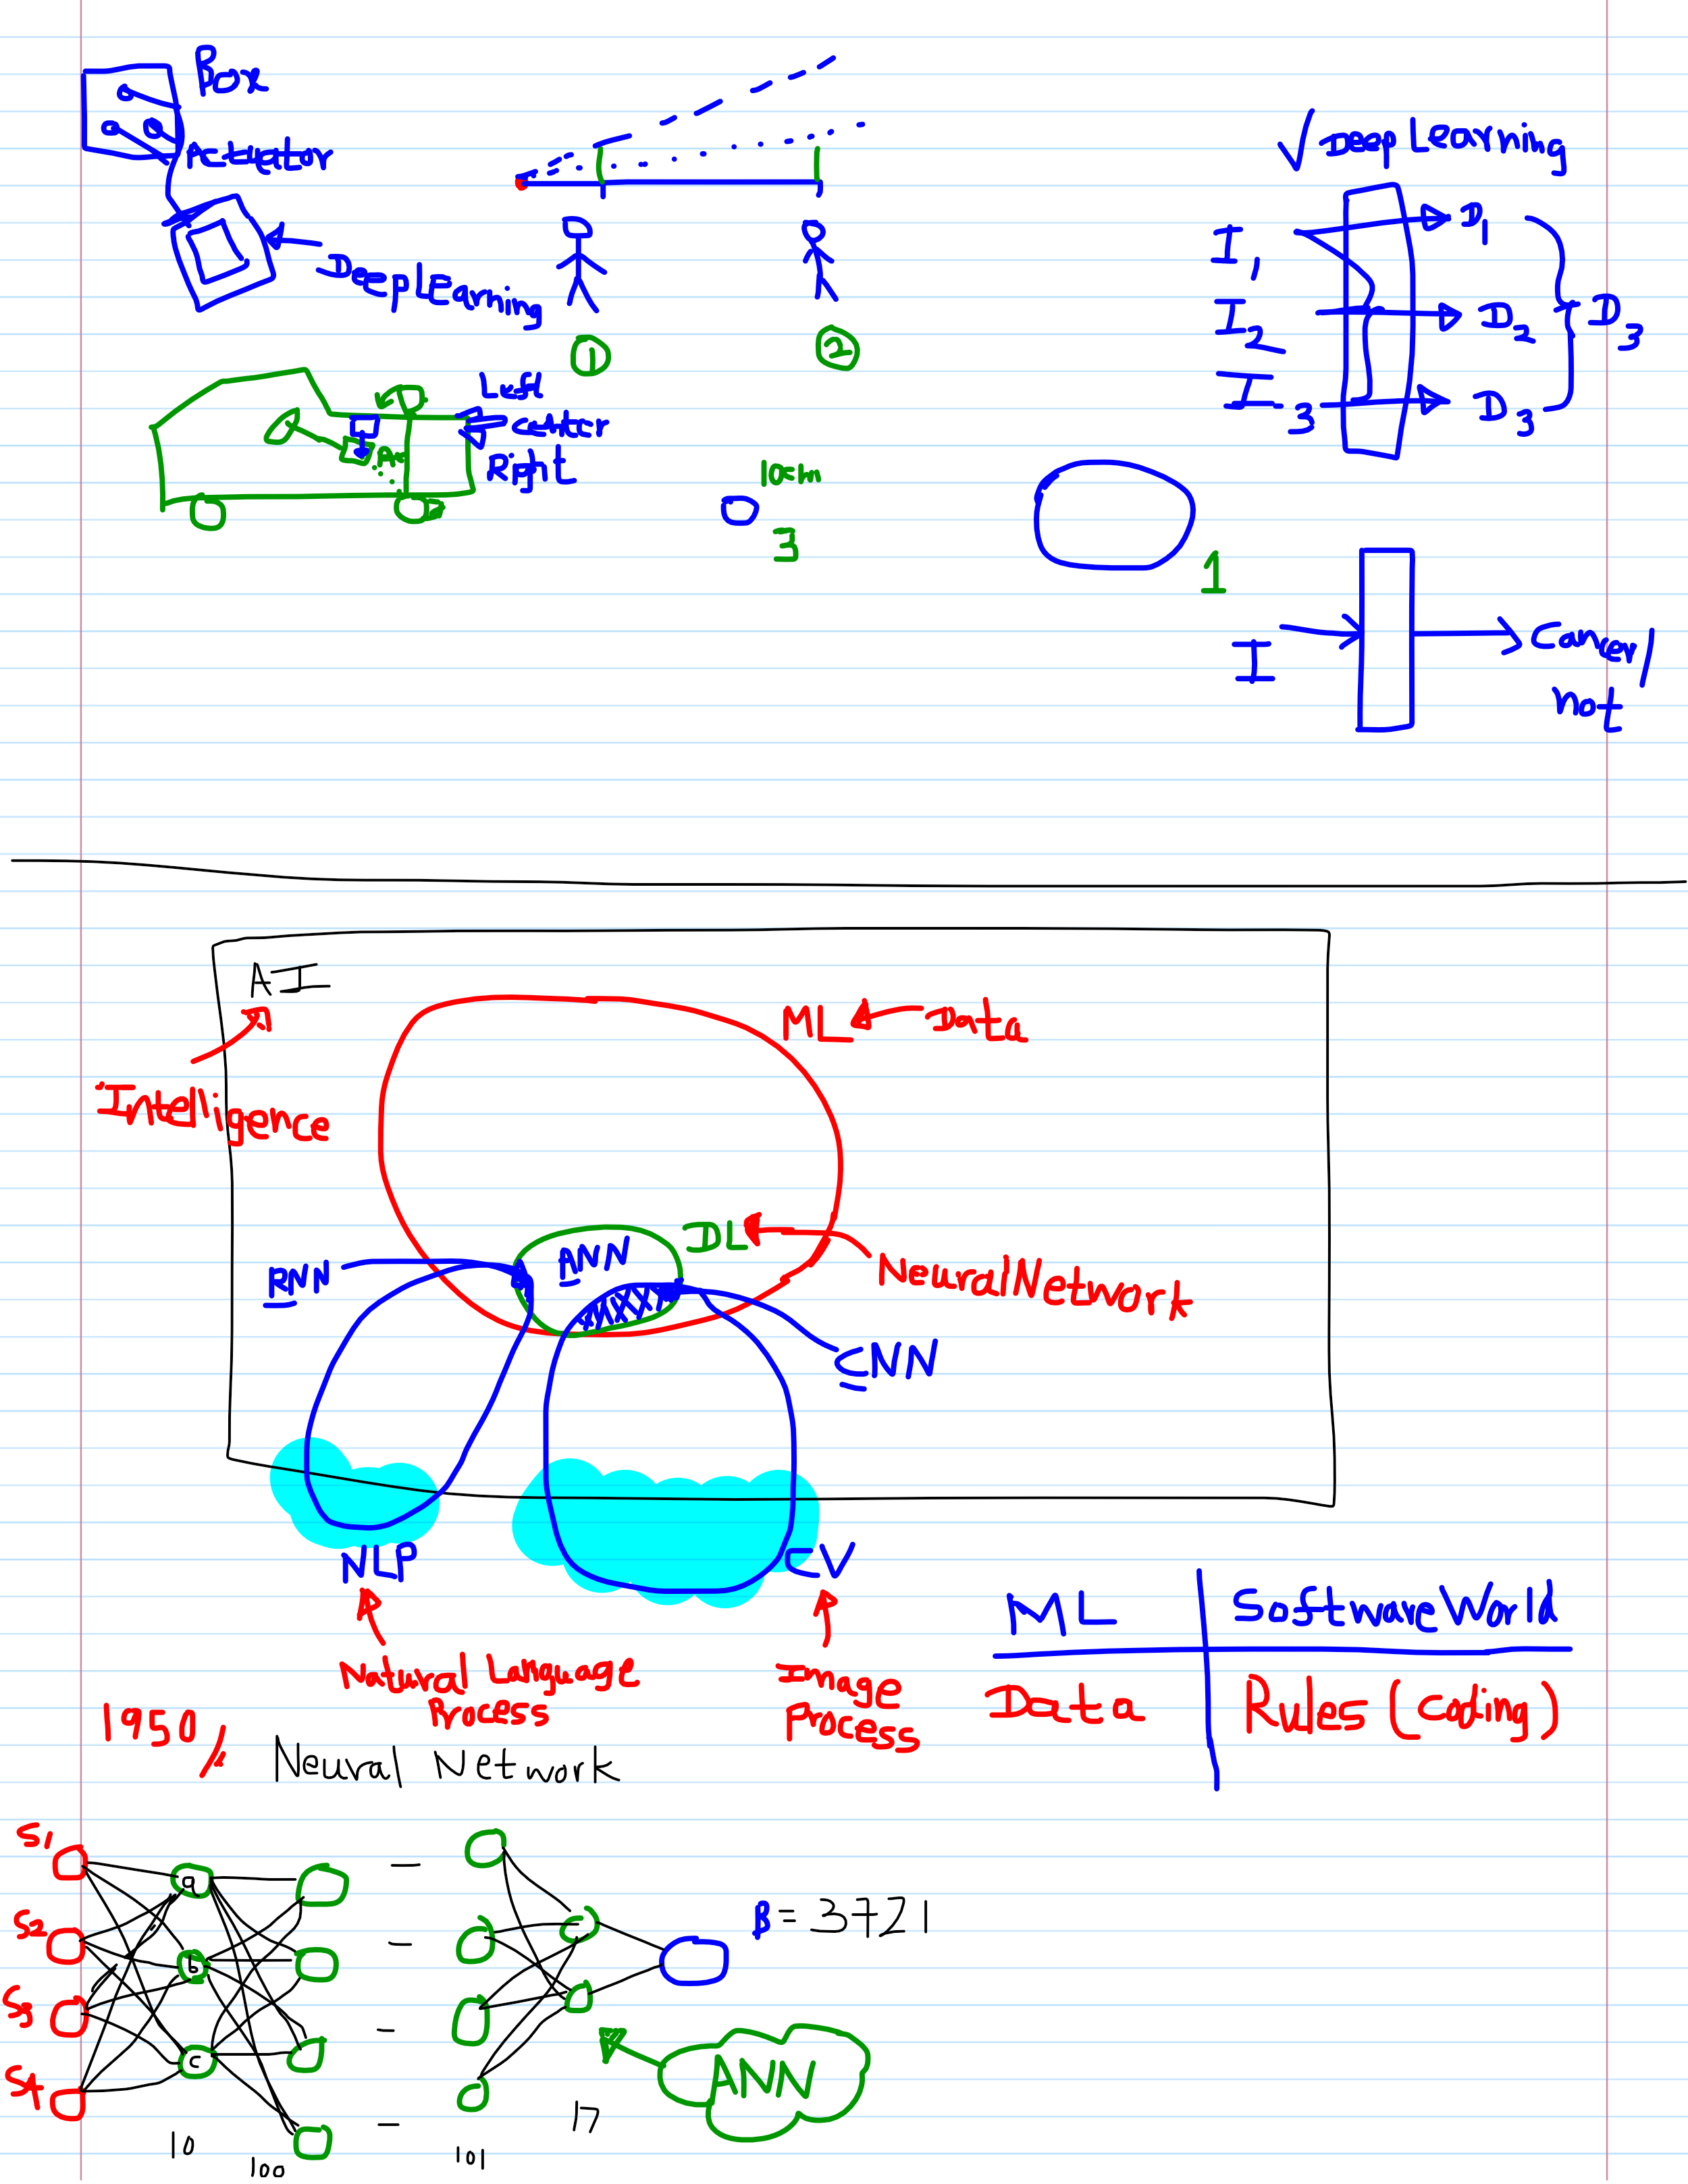 Box
Actuator
Deep Learning
1
2
Left
Center
Right
10cm
3
1
Deep Learning
I1
D1
I2
D2
D3
I3
D3
I
Cancer/
not
AI
ML
Data
Intelligence
DL
ANN
RNN
Neural Network
CNN
NLP
CV
Natural Language
Process
Image
Process
ML
Software World
Data
Rules (coding)
1950,
Neural Network
S1
S2
S3
S4
a
b
c
β = 3721
ANN
10
100
101
17